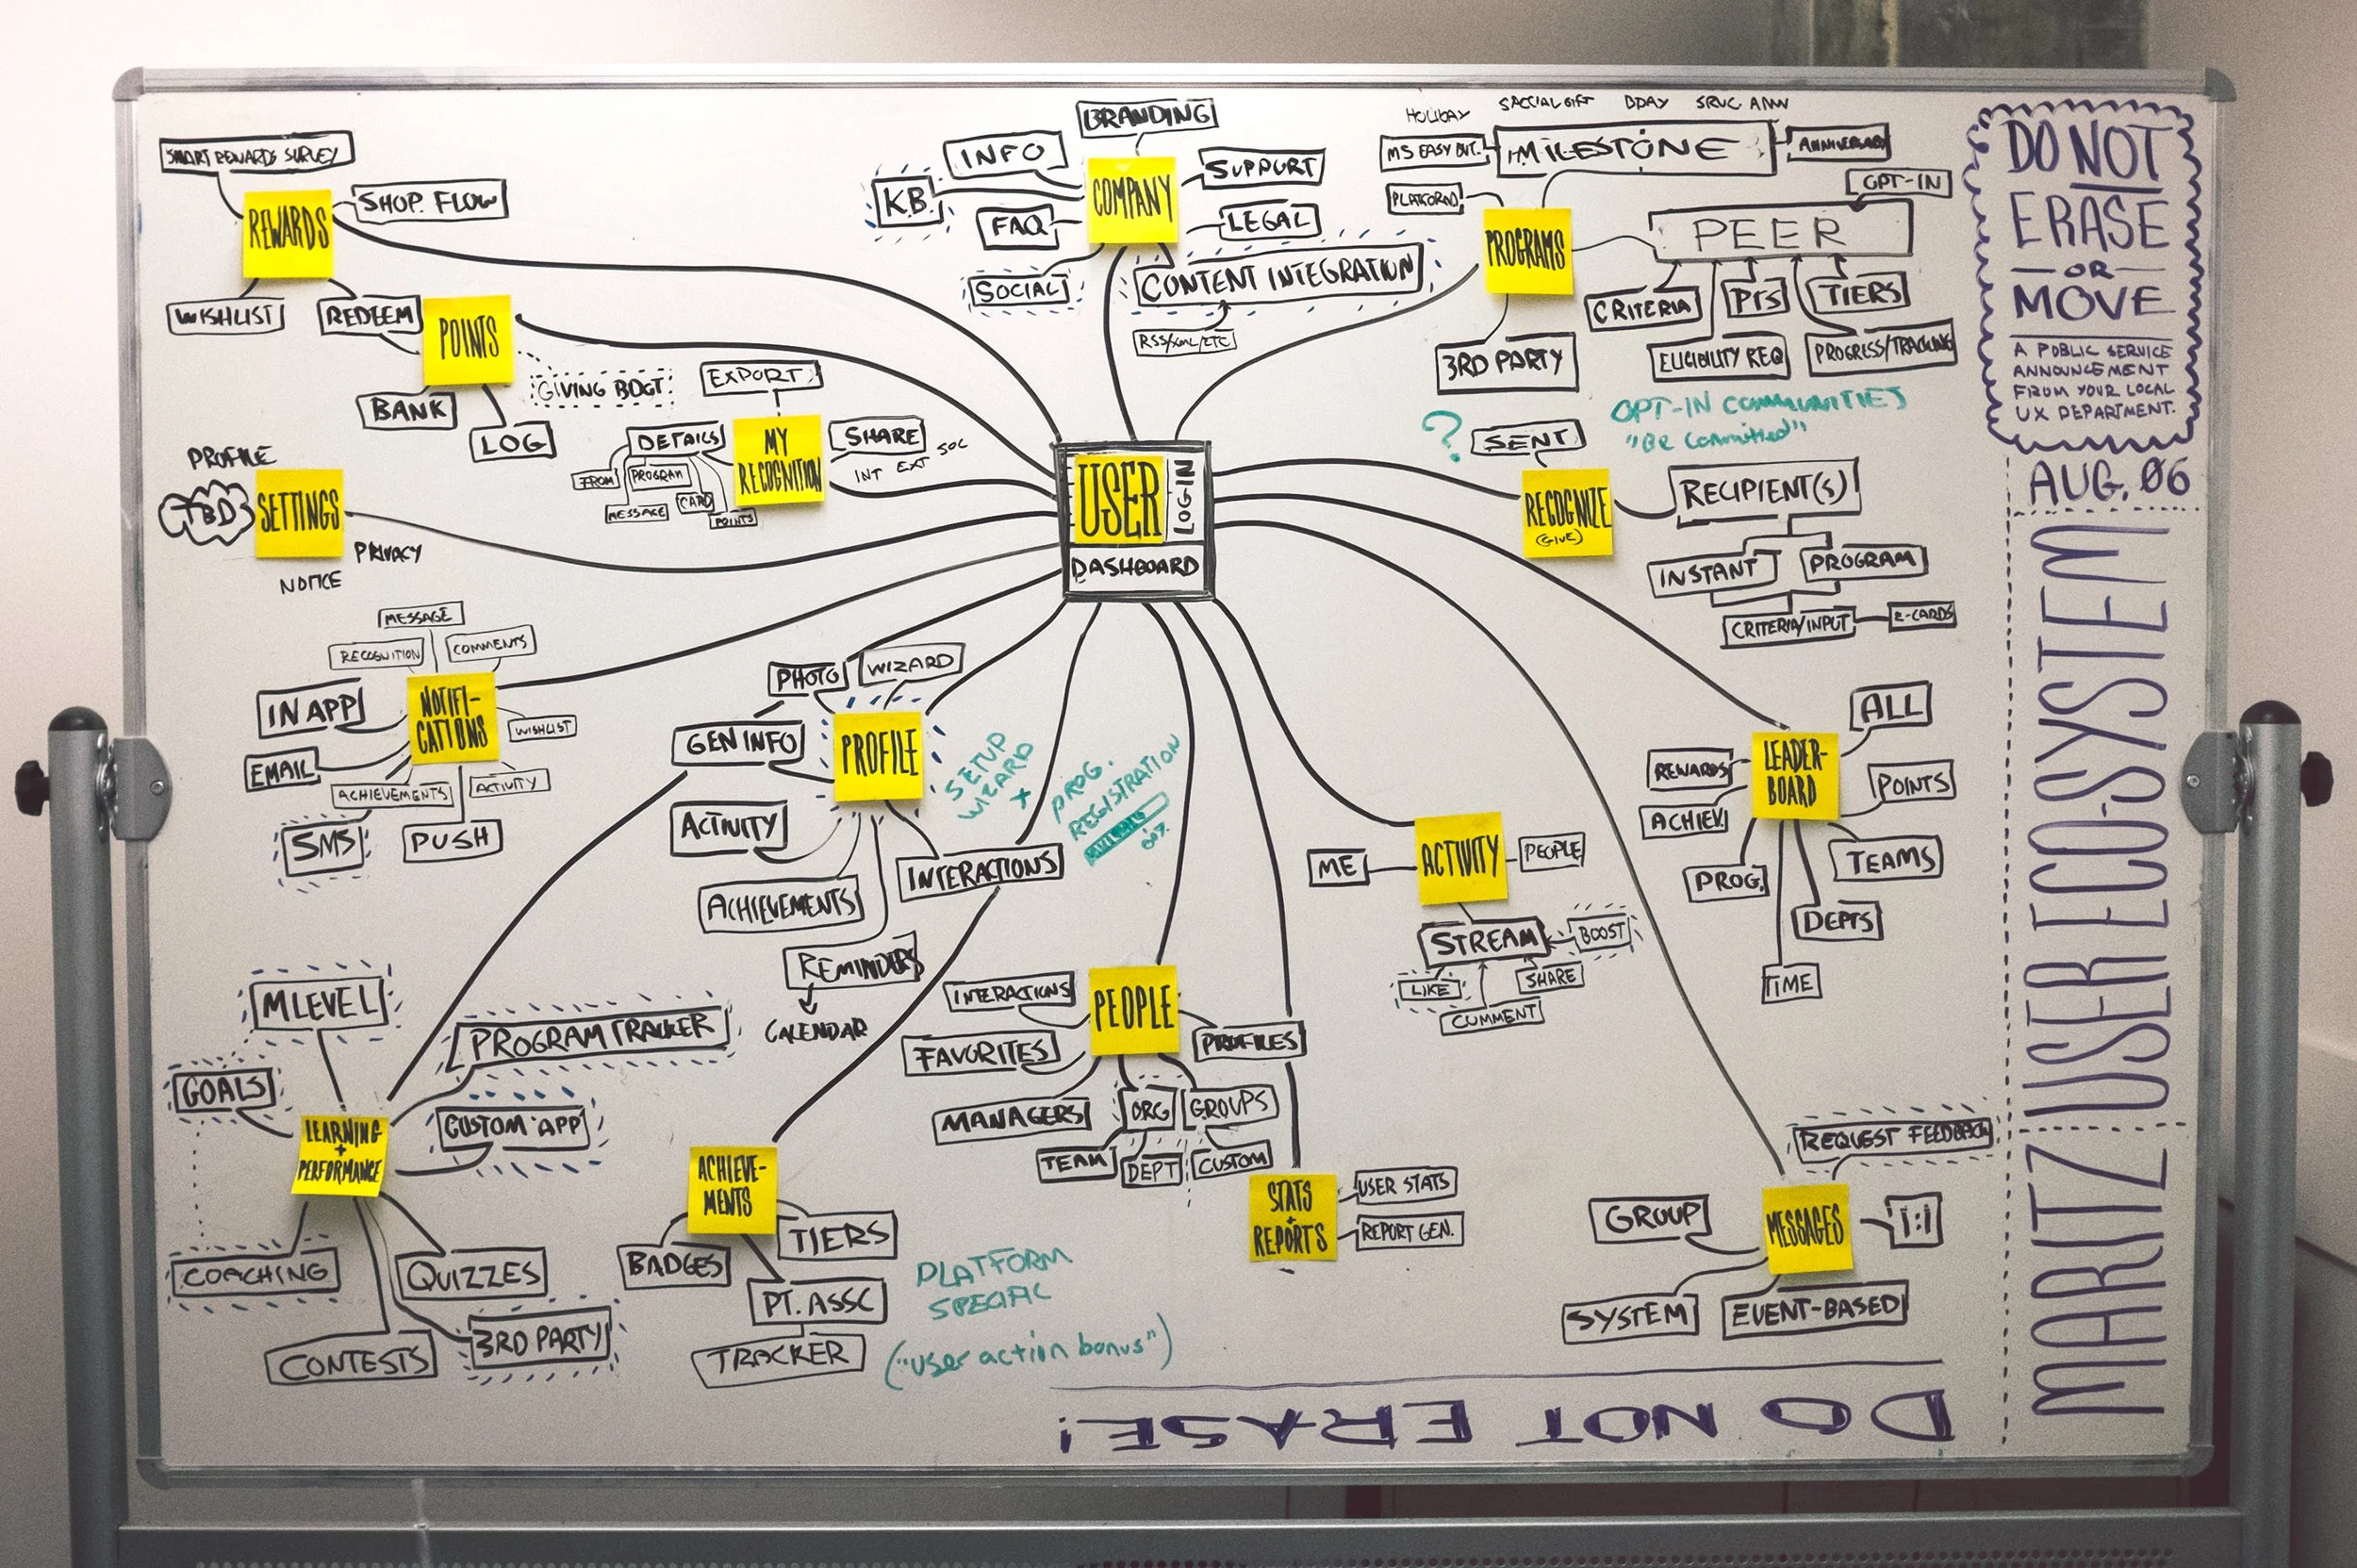 SMART REWARDS SURVEY
REWARDS
SHOP. FLOW
WISHLIST
REDEEM
POINTS
GIVING BDGT
BANK
LOG
PROFILE
TBD
SETTINGS
PRIVACY
NOTICE
EXPORT
DETAILS
MY
RECOGNITION
SHARE
INT EXT SOC
FROM
PROGRAM
MESSAGE
CARD
POINTS
BRANDING
INFO
KB.
FAQ
SOCIAL
COMPANY
SUPPORT
LEGAL
CONTENT INTEGRATION
RSS/XML/ETC
HOLIDAY
SPECIAL GIFT
BDAY
SRVC ANN
MS EASY BUT.
MILESTONE
ANNIVERSARY
PLATFORM
OPT-IN
PROGRAMS
PEER
CRITERIA
PTS
TIERS
3RD PARTY
ELIGIBILITY REQ
PROGRESS/TRACKING
OPT-IN COMMUNITIES
"Be Committed"
?
SENT
RECOGNIZE
(GIVE)
RECIPIENT(S)
INSTANT
PROGRAM
CRITERIA/INPUT
E-CARDS
USER
LOG-IN
DASHBOARD
MESSAGE
RECOGNITION
COMMENTS
IN APP
NOTIFI-
CATIONS
WISHLIST
EMAIL
ACHIEVEMENTS
ACTIVITY
SMS
PUSH
PHOTO
WIZARD
GEN INFO
PROFILE
ACTIVITY
ACHIEVEMENTS
INTERACTIONS
REMINDERS
CALENDAR
SETUP
WIZARD
X
PROG.
REGISTRATION
60%
ALL
REWARDS
LEADER-
BOARD
POINTS
ACHIEV.
TEAMS
PROG.
DEPTS
TIME
ME
ACTIVITY
PEOPLE
STREAM
BOOST
LIKE
SHARE
COMMENT
MLEVEL
PROGRAM TRACKER
GOALS
CUSTOM APP
LEARNING
+
PERFORMANCE
COACHING
QUIZZES
3RD PARTY
CONTESTS
ACHIEVE-
MENTS
BADGES
TIERS
PT. ASSC
TRACKER
PLATFORM
SPECIFIC
("user action bonus")
INTERACTIONS
PEOPLE
FAVORITES
PROFILES
MANAGERS
ORG
GROUPS
TEAM
DEPT
CUSTOM
STATS
+
REPORTS
USER STATS
REPORT GEN.
REQUEST FEEDBACK
GROUP
MESSAGES
1:1
SYSTEM
EVENT-BASED
DO NOT ERASE!
DO NOT
ERASE
OR
MOVE
A PUBLIC SERVICE
ANNOUNCEMENT
FROM YOUR LOCAL
UX DEPARTMENT.
AUG. 06
MARITZ USER ECO-SYSTEM